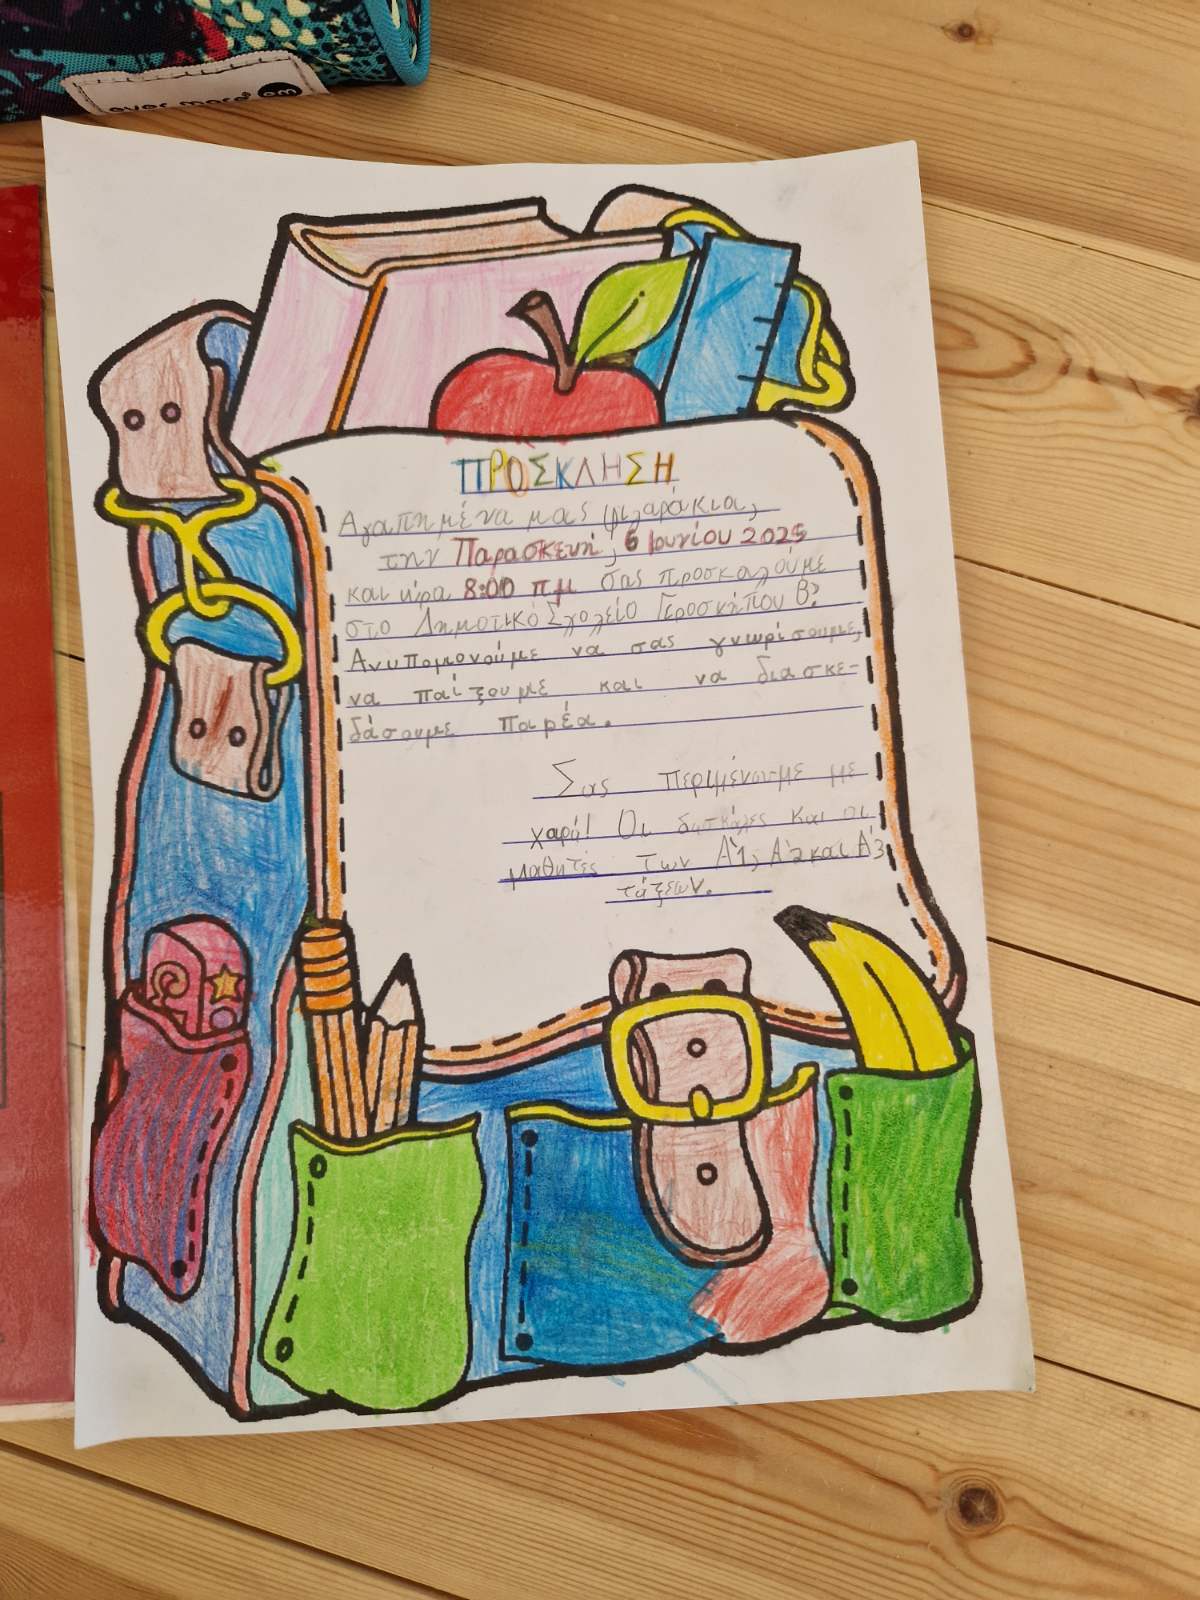 ever more
ΠΡΟΣΚΛΗΣΗ
Αγαπημένα μας φιλαράκια,
την Παρασκευή, 6 Ιουνίου 2025
και ώρα 8:00 π.μ σας προσκαλούμε
στο Δημοτικό Σχολείο Γεροσκήπου Β΄.
Ανυπομονούμε να σας γνωρίσουμε,
να παίξουμε και να διασκε-
δάσουμε παρέα.
Σας περιμένουμε με
χαρά! Οι δασκάλες και οι
μαθητές των Α΄1, Α΄2 και Α΄3
τάξεων.